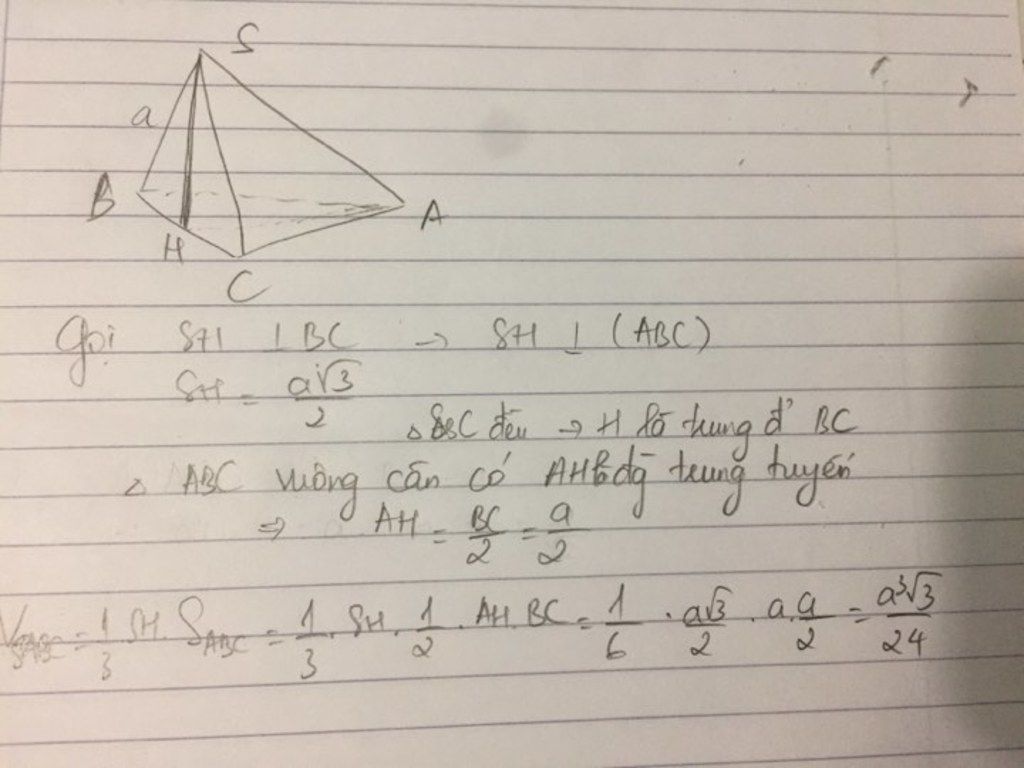 S
a
B
A
H
C
Gọi SH ⊥ BC → SH ⊥ (ABC)
SH = a√3/2
△ SBC đều → H là trung đ' BC
△ ABC vuông cân có AH là đg trung tuyến
⇒ AH = BC/2 = a/2
V_SABC = 1/3 SH. S_ABC = 1/3 . SH. 1/2 . AH. BC = 1/6 . a√3/2 . a. a/2 = a³√3/24